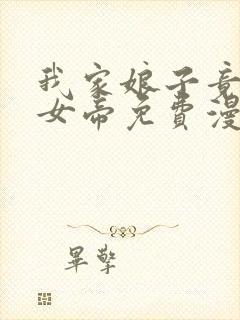 我家娘子竟
女帝免费漫
毕擎